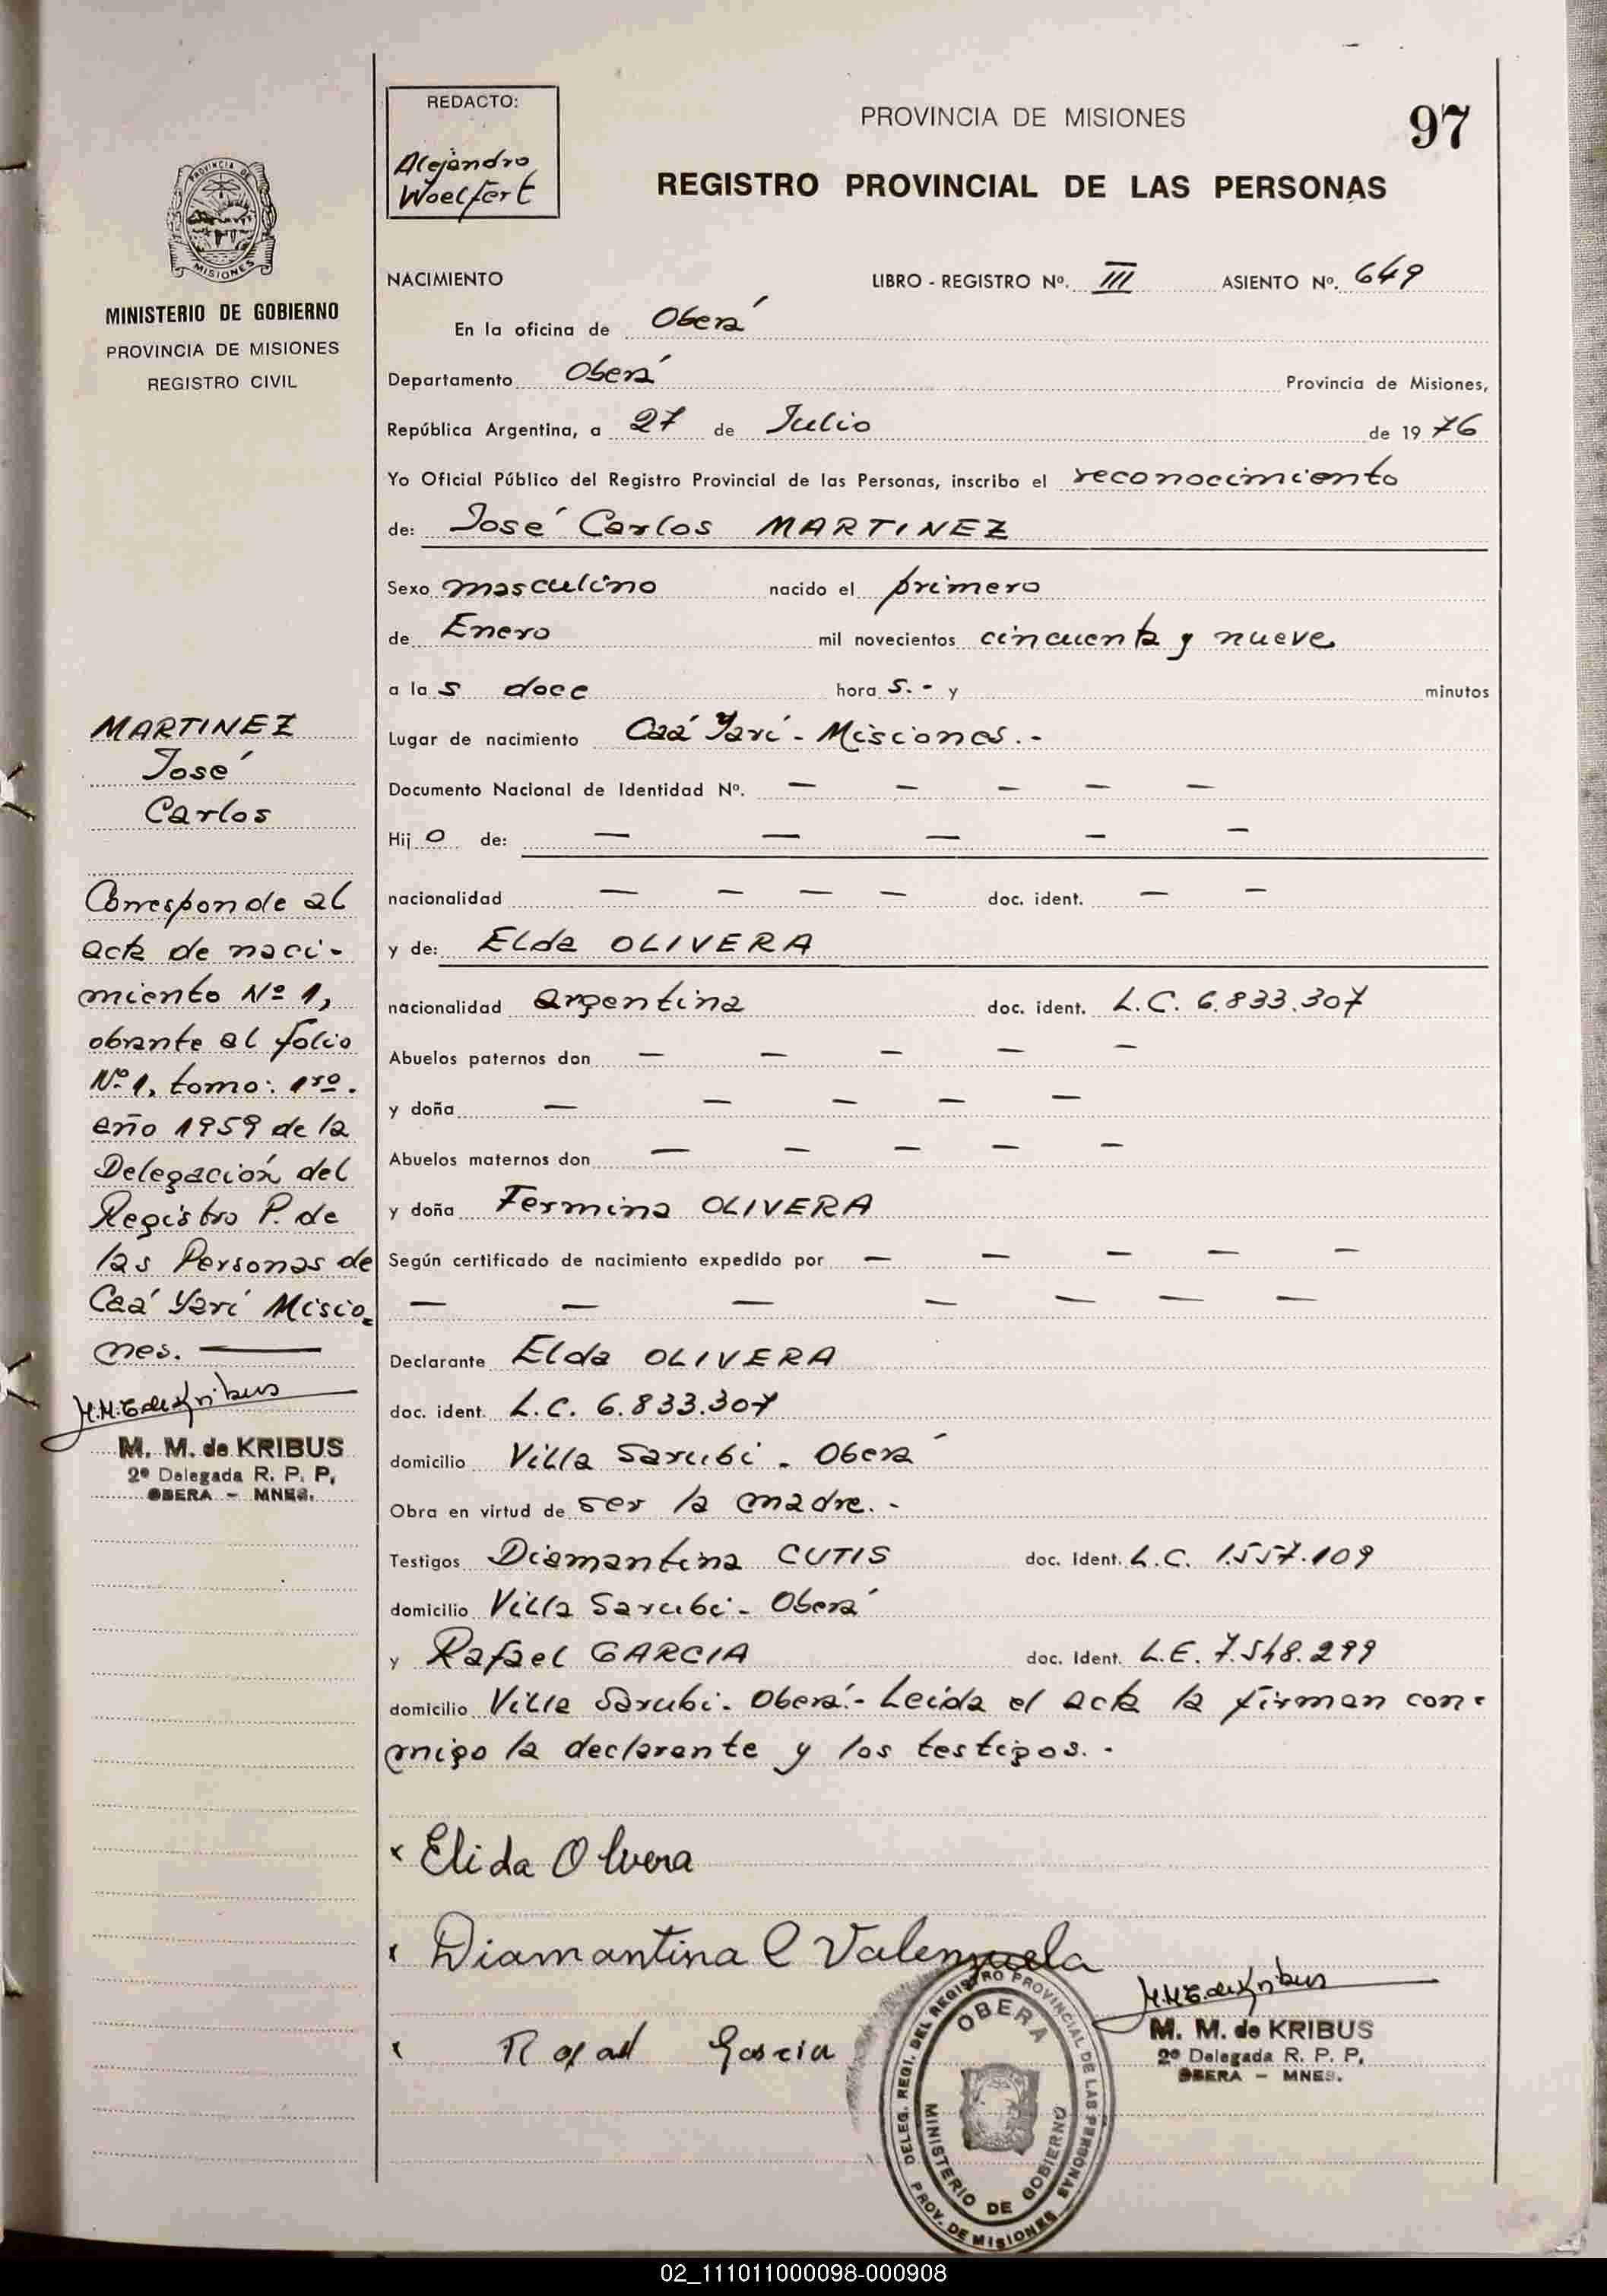 REDACTO:
Alejandro
Woelfert
PROVINCIA DE MISIONES
97
REGISTRO PROVINCIAL DE LAS PERSONAS
PROVINCIA DE
MISIONES
MINISTERIO DE GOBIERNO
PROVINCIA DE MISIONES
REGISTRO CIVIL
MARTINEZ
José
Carlos
Corresponde al
acta de naci-
miento Nº 1,
obrante al folio
Nº 1, tomo: 1ro.
año 1959 de la
Delegación del
Registro P. de
las Personas de
Caá Yarí Misio
nes.
M.M.E de Kribus
M. M. de KRIBUS
2º Delegada R. P. P,
OBERA - MNES.
NACIMIENTO LIBRO - REGISTRO Nº. III ASIENTO Nº. 649
En la oficina de Oberá
Departamento Oberá Provincia de Misiones,
República Argentina, a 27 de Julio de 19 76
Yo Oficial Público del Registro Provincial de las Personas, inscribo el reconocimiento
de: José Carlos MARTINEZ
Sexo masculino nacido el primero
de Enero mil novecientos cincuenta y nueve
a la s doce hora s.- y minutos
Lugar de nacimiento Caá Yarí - Misiones.-
Documento Nacional de Identidad Nº. — — — — —
Hij o de: — — — — —
nacionalidad — — — — doc. ident. — —
y de: Elda OLIVERA
nacionalidad argentina doc. ident. L.C. 6.833.307
Abuelos paternos don — — — — —
y doña — — — — —
Abuelos maternos don — — — — —
y doña Fermina OLIVERA
Según certificado de nacimiento expedido por — — — — —
— — — — — — —
Declarante Elda OLIVERA
doc. ident. L.C. 6.833.307
domicilio Villa Sarubi - Oberá
Obra en virtud de ser la madre.-
Testigos Diamantina CUTIS doc. Ident. L.C. 1.557.109
domicilio Villa Sarubi - Oberá
y Rafael GARCIA doc. Ident. L.E. 7.548.299
domicilio Villa Sarubi - Oberá.- Leída el acta la firman con-
migo la declarante y los testigos.-
x Elida Olvera
x Diamantina C Valenzuela
x Rafael Garcia
DELEG. REGI. DEL REGISTRO PROVINCIAL DE LAS PERSONAS
OBERA
MINISTERIO DE GOBIERNO
PROV. DE MISIONES
M.M.E. de Kribus
M. M. de KRIBUS
2º Delegada R. P. P,
OBERA - MNES.
02_111011000098-000908